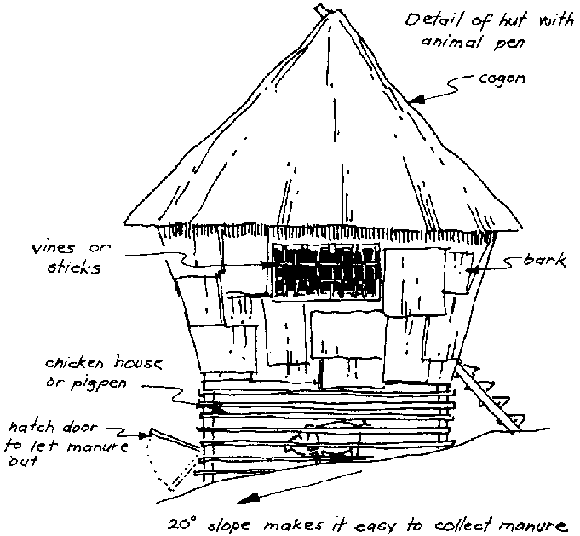 Detail of hut with
animal pen
cogon
vines or
sticks
bark
chicken house
or pigpen
hatch door
to let manure
out
20° slope makes it easy to collect manure